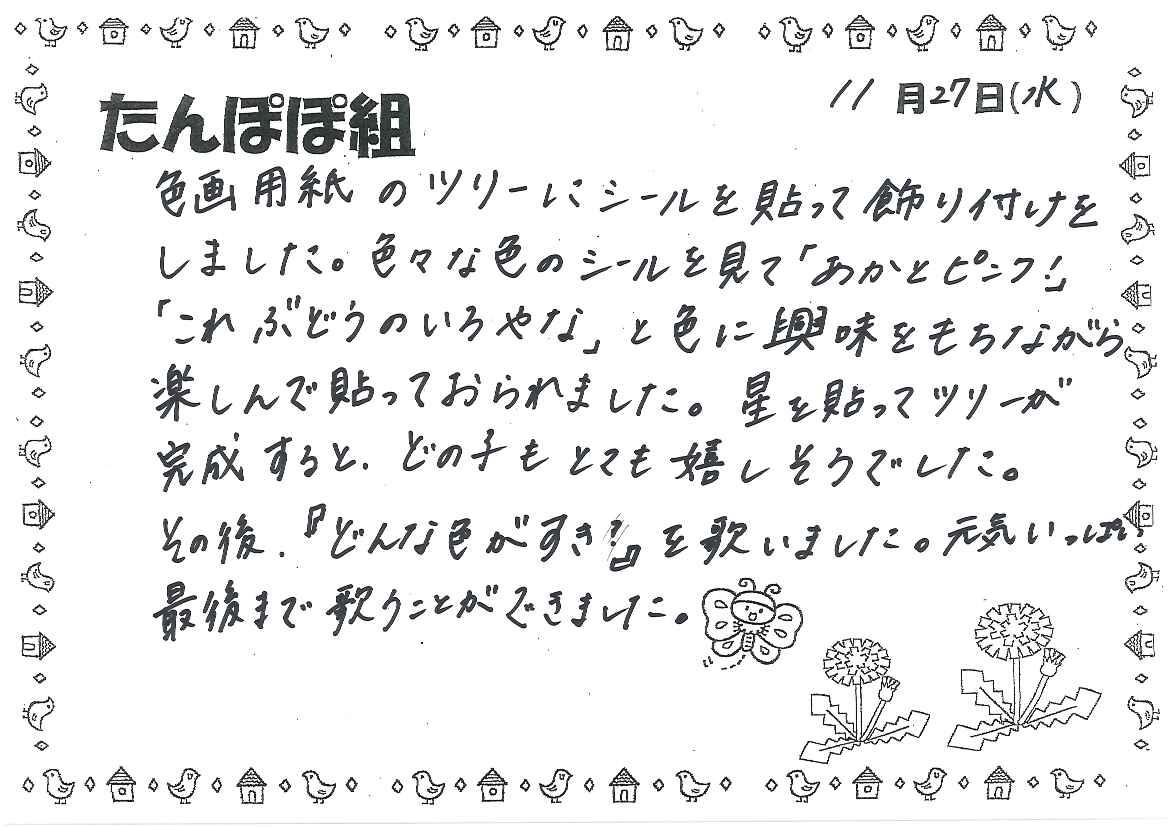 11月27日(水)
たんぽぽ組
色画用紙のツリーにシールを貼って飾り付けを
しました。色々な色のシールを見て「あかとピンク!」
「これぶどうのいろやな」と色に興味をもちながら
楽しんで貼っておられました。星を貼ってツリーが
完成すると、どの子もとても嬉しそうでした。
その後、『どんな色がすき?』を歌いました。元気いっぱい
最後まで歌うことができました。